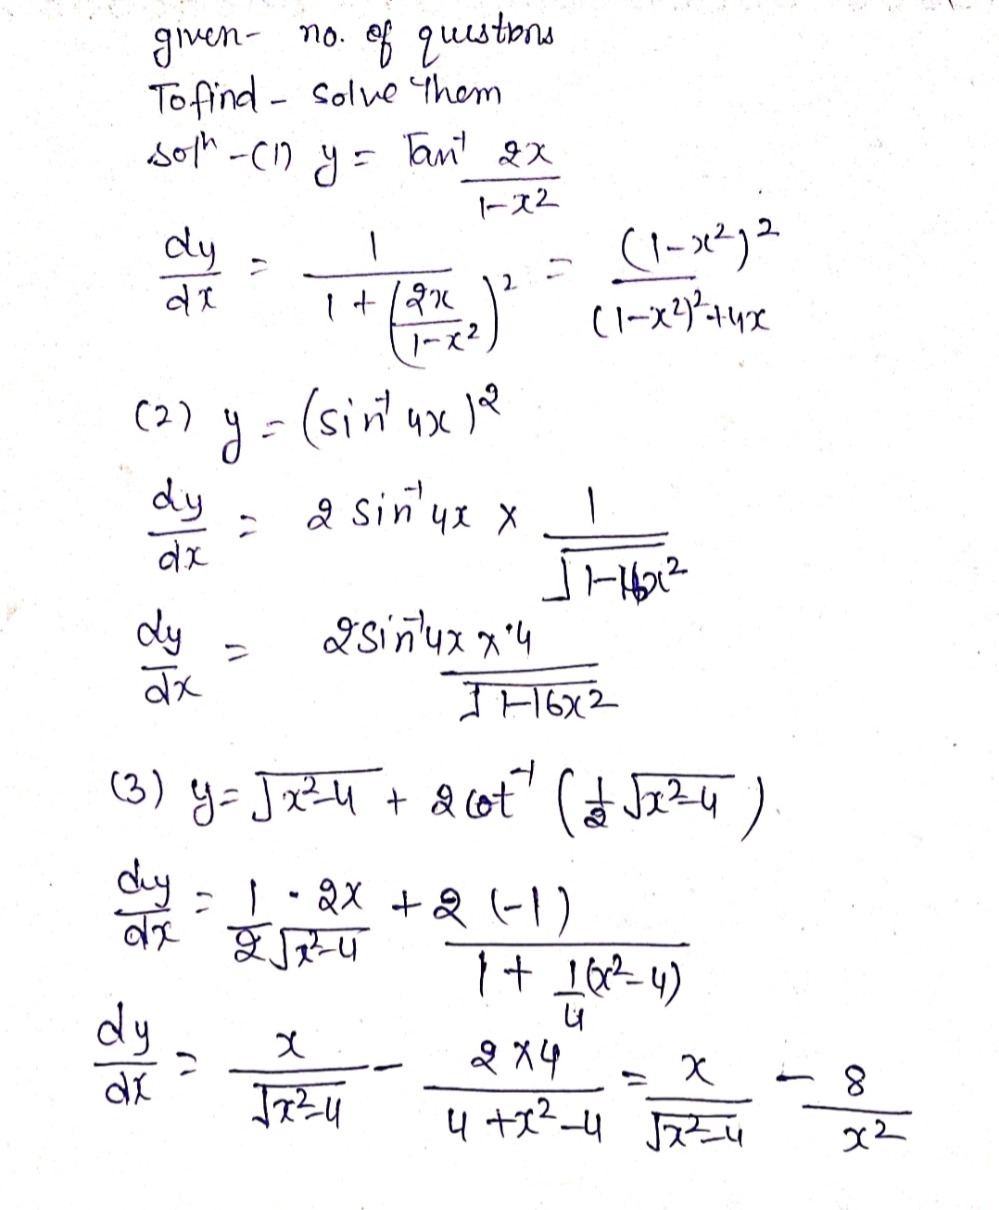 given- no. of questions
To find - solve them
soln -(1) y = Tan⁻¹ 2x / 1-x2
dy/dx = 1 / 1 + (2x / 1-x2)² = (1-x²)² / (1-x²)²+4x
(2) y = (sin⁻¹ 4x)²
dy/dx = 2 sin⁻¹ 4x × 1 / √1-16x²
dy/dx = 2 sin⁻¹ 4x × 4 / √1-16x2
(3) y = √x²-4 + 2 cot⁻¹ (1/2 √x²-4).
dy/dx = 1 · 2x / 2√x²-4 + 2 (-1) / 1 + 1/4(x²-4)
dy/dx = x / √x²-4 - 2×4 / 4+x²-4 = x / √x²-4 - 8 / x2